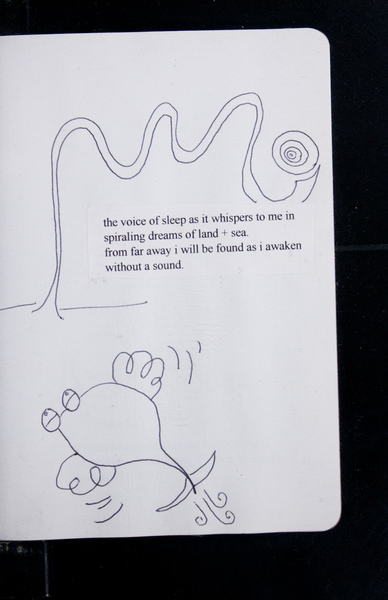 the voice of sleep as it whispers to me in
spiraling dreams of land + sea.
from far away i will be found as i awaken
without a sound.